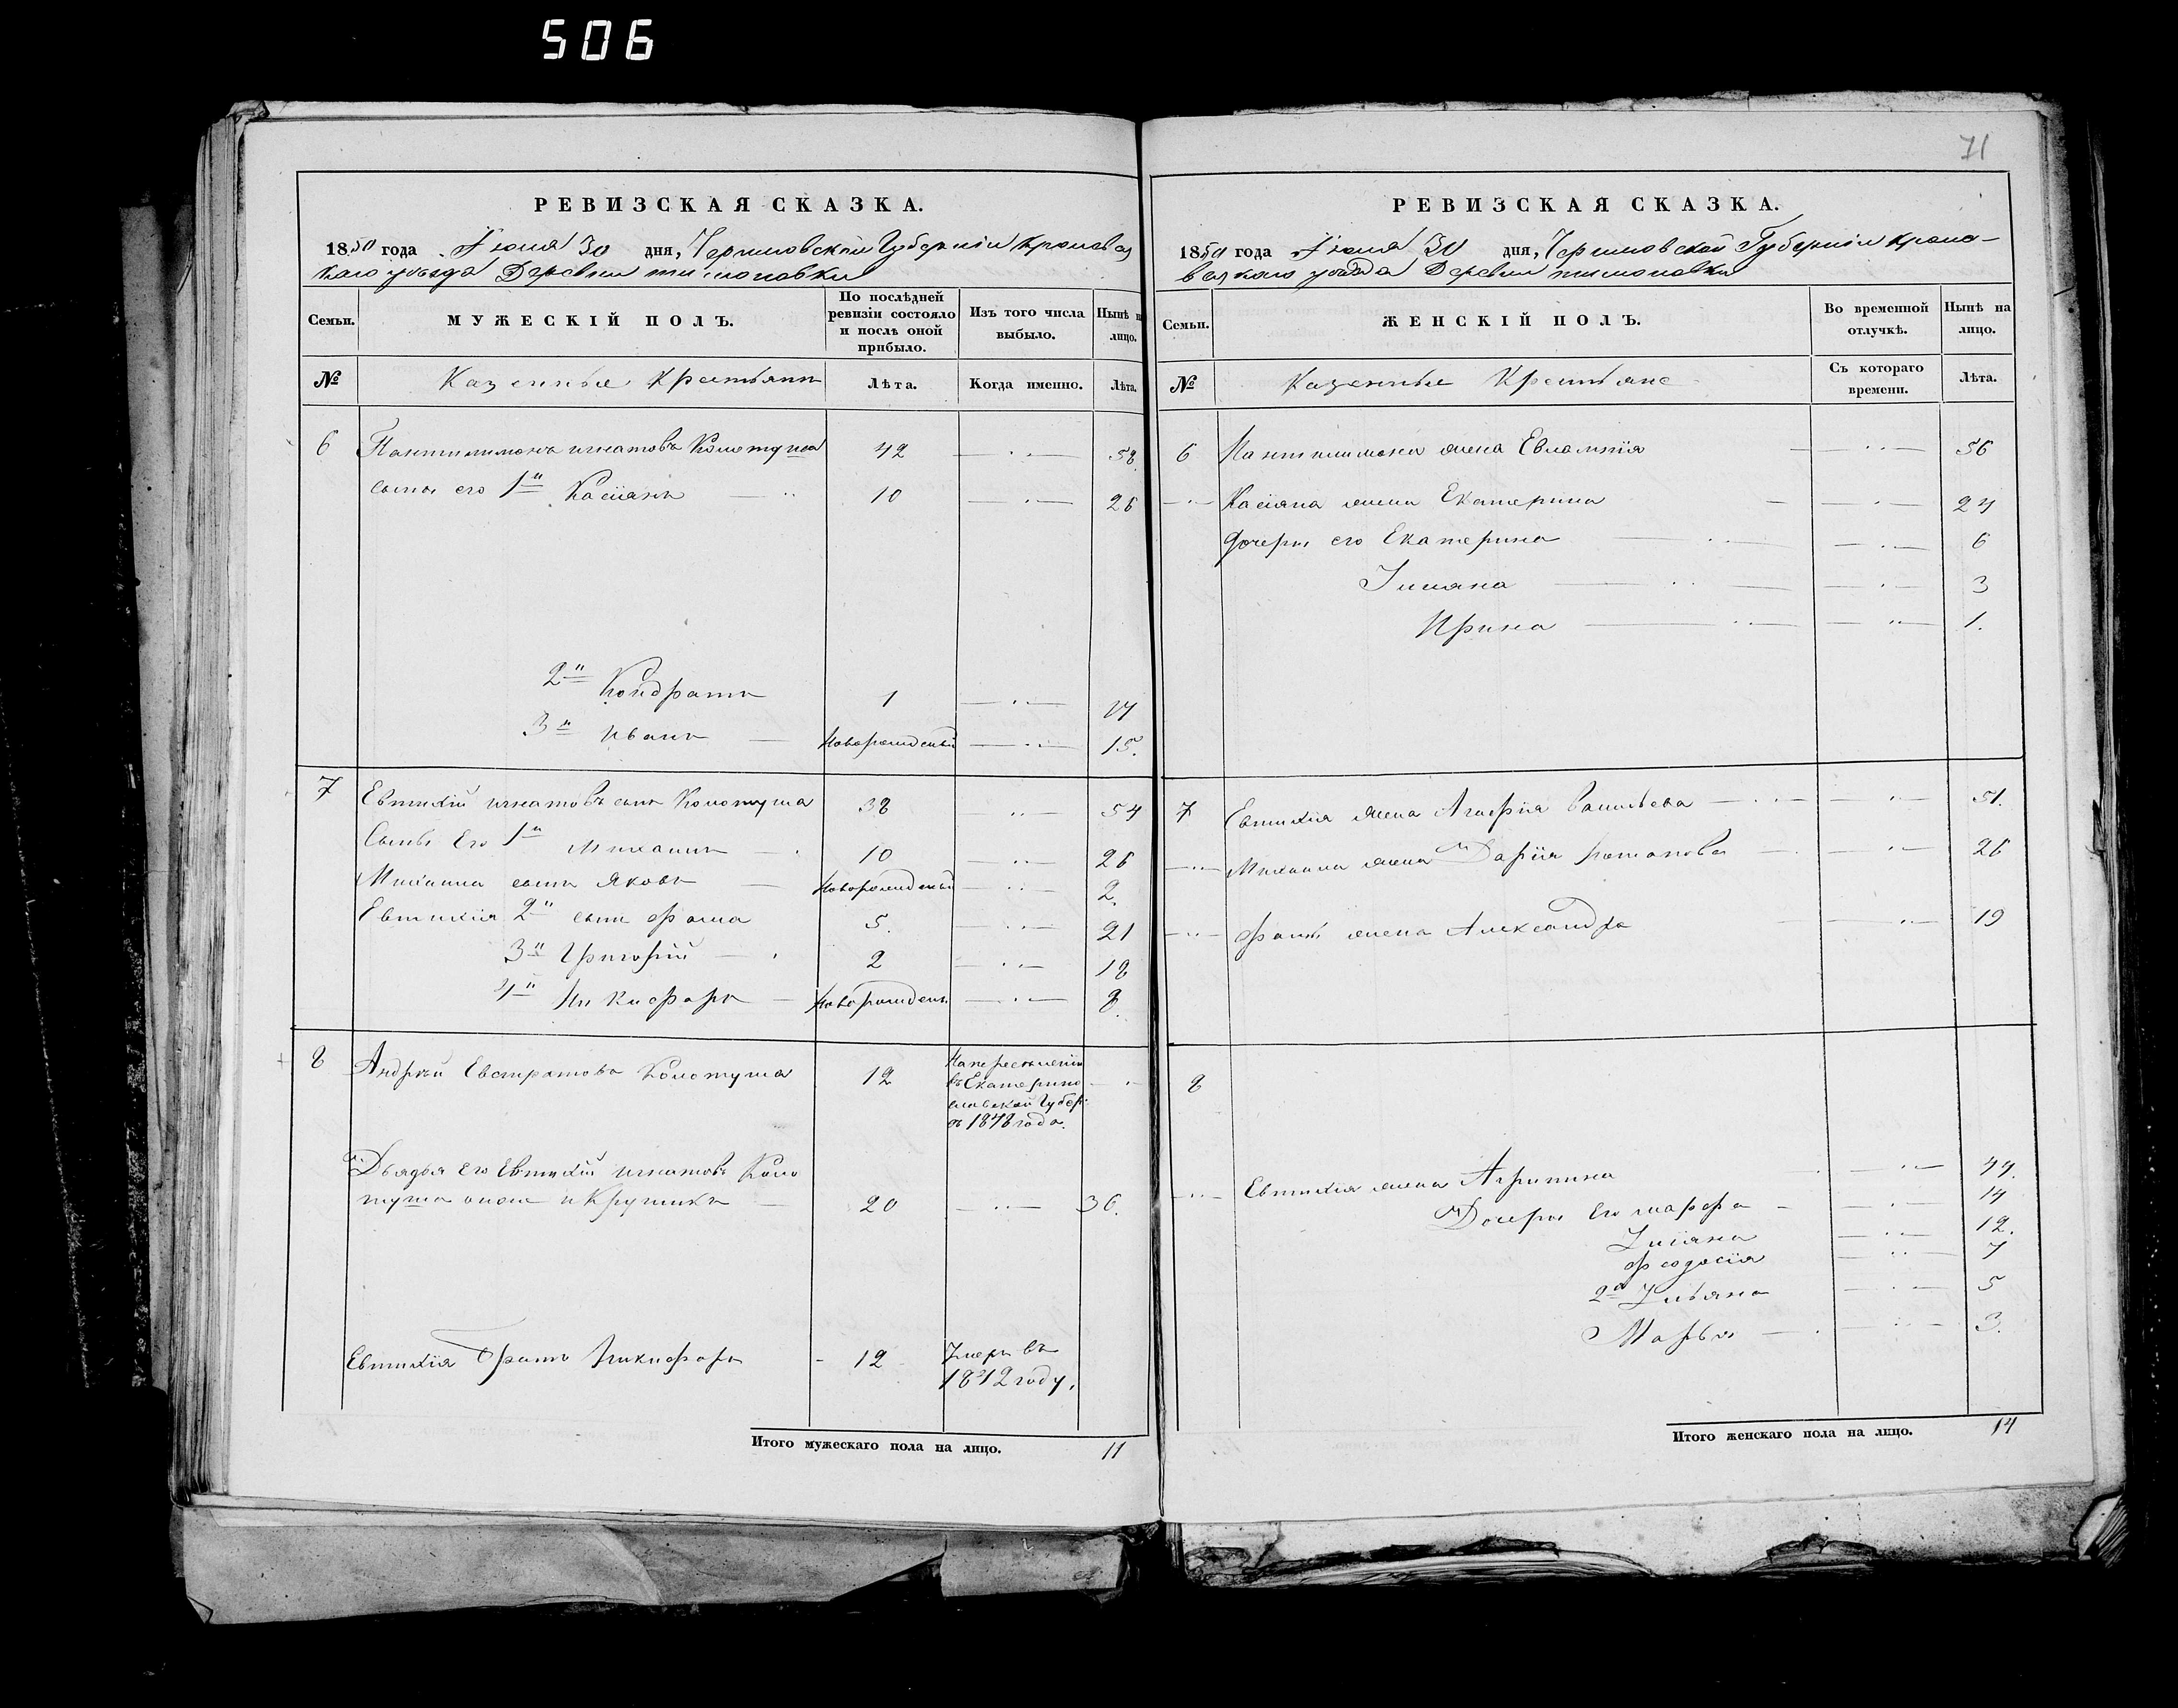 506
71
РЕВИЗСКАЯ СКАЗКА.
1850 года Июня 30 дня, Черниговской Губерніи Кролевец
каго уѣзда Деревни тимоновки
Семьи. МУЖЕСКІЙ ПОЛЪ. По послѣдней ревизіи состояло и послѣ оной прибыло. Изъ того числа выбыло. Нынѣ на лицо.
№ Казенные Крестьяни Лѣта. Когда именно. Лѣта.
6 Пантилимонъ игнатовъ Колотуша 42 58
сыны его 1й Касіянъ 10 26
2й Кондратъ 1 17
3й иванъ Новорожденый 15.
7 Евтихій игнатовъ сынъ Колотуша 38 54
Сыны Его 1й Михаилъ 10 26
Михаила сынъ Яковъ Новорожденый 2.
Евтихія 2й сынъ фома 5. 21
3й Григорій 2 18
4й Никифоръ Новорожденъ 8.
8 Андрѣй Евстратовъ Колотуша 12 На переселеніи
въ Екатерино
славской Губер:
съ 1848 года.
Дьядья его Евтихій игнатовъ Коло
туша онже и Крупикъ 20 36.
Евтихія братъ Никифоръ 12 Умеръ въ
1842 году.
Итого мужескаго пола на лицо. 11
РЕВИЗСКАЯ СКАЗКА.
1850 года Июня 30 дня, Черниговской Губерніи Кроле-
вецкаго уѣзда Деревни тимоновки
Семьи. ЖЕНСКІЙ ПОЛЪ. Во временной отлучкѣ. Нынѣ на лицо.
№ Казенные Крестьяне Съ котораго времени. Лѣта.
6 Пантилимона жена Евлампія 56
Касіяна жена Екатерина 24
Дочеры его Екатерина 6
Улияна 3
Ирина 1.
7 Евтихія жена Агафія Василѣева 51.
Михаила жена Дарія потапова 26
фомы жена Александра 19
8
Евтихія жена Агрипина 44.
Дочеры Его марфа 14
Улияна 12.
феодосія 7
2я Ульяна 5
Марья 3.
Итого женскаго пола на лицо. 14